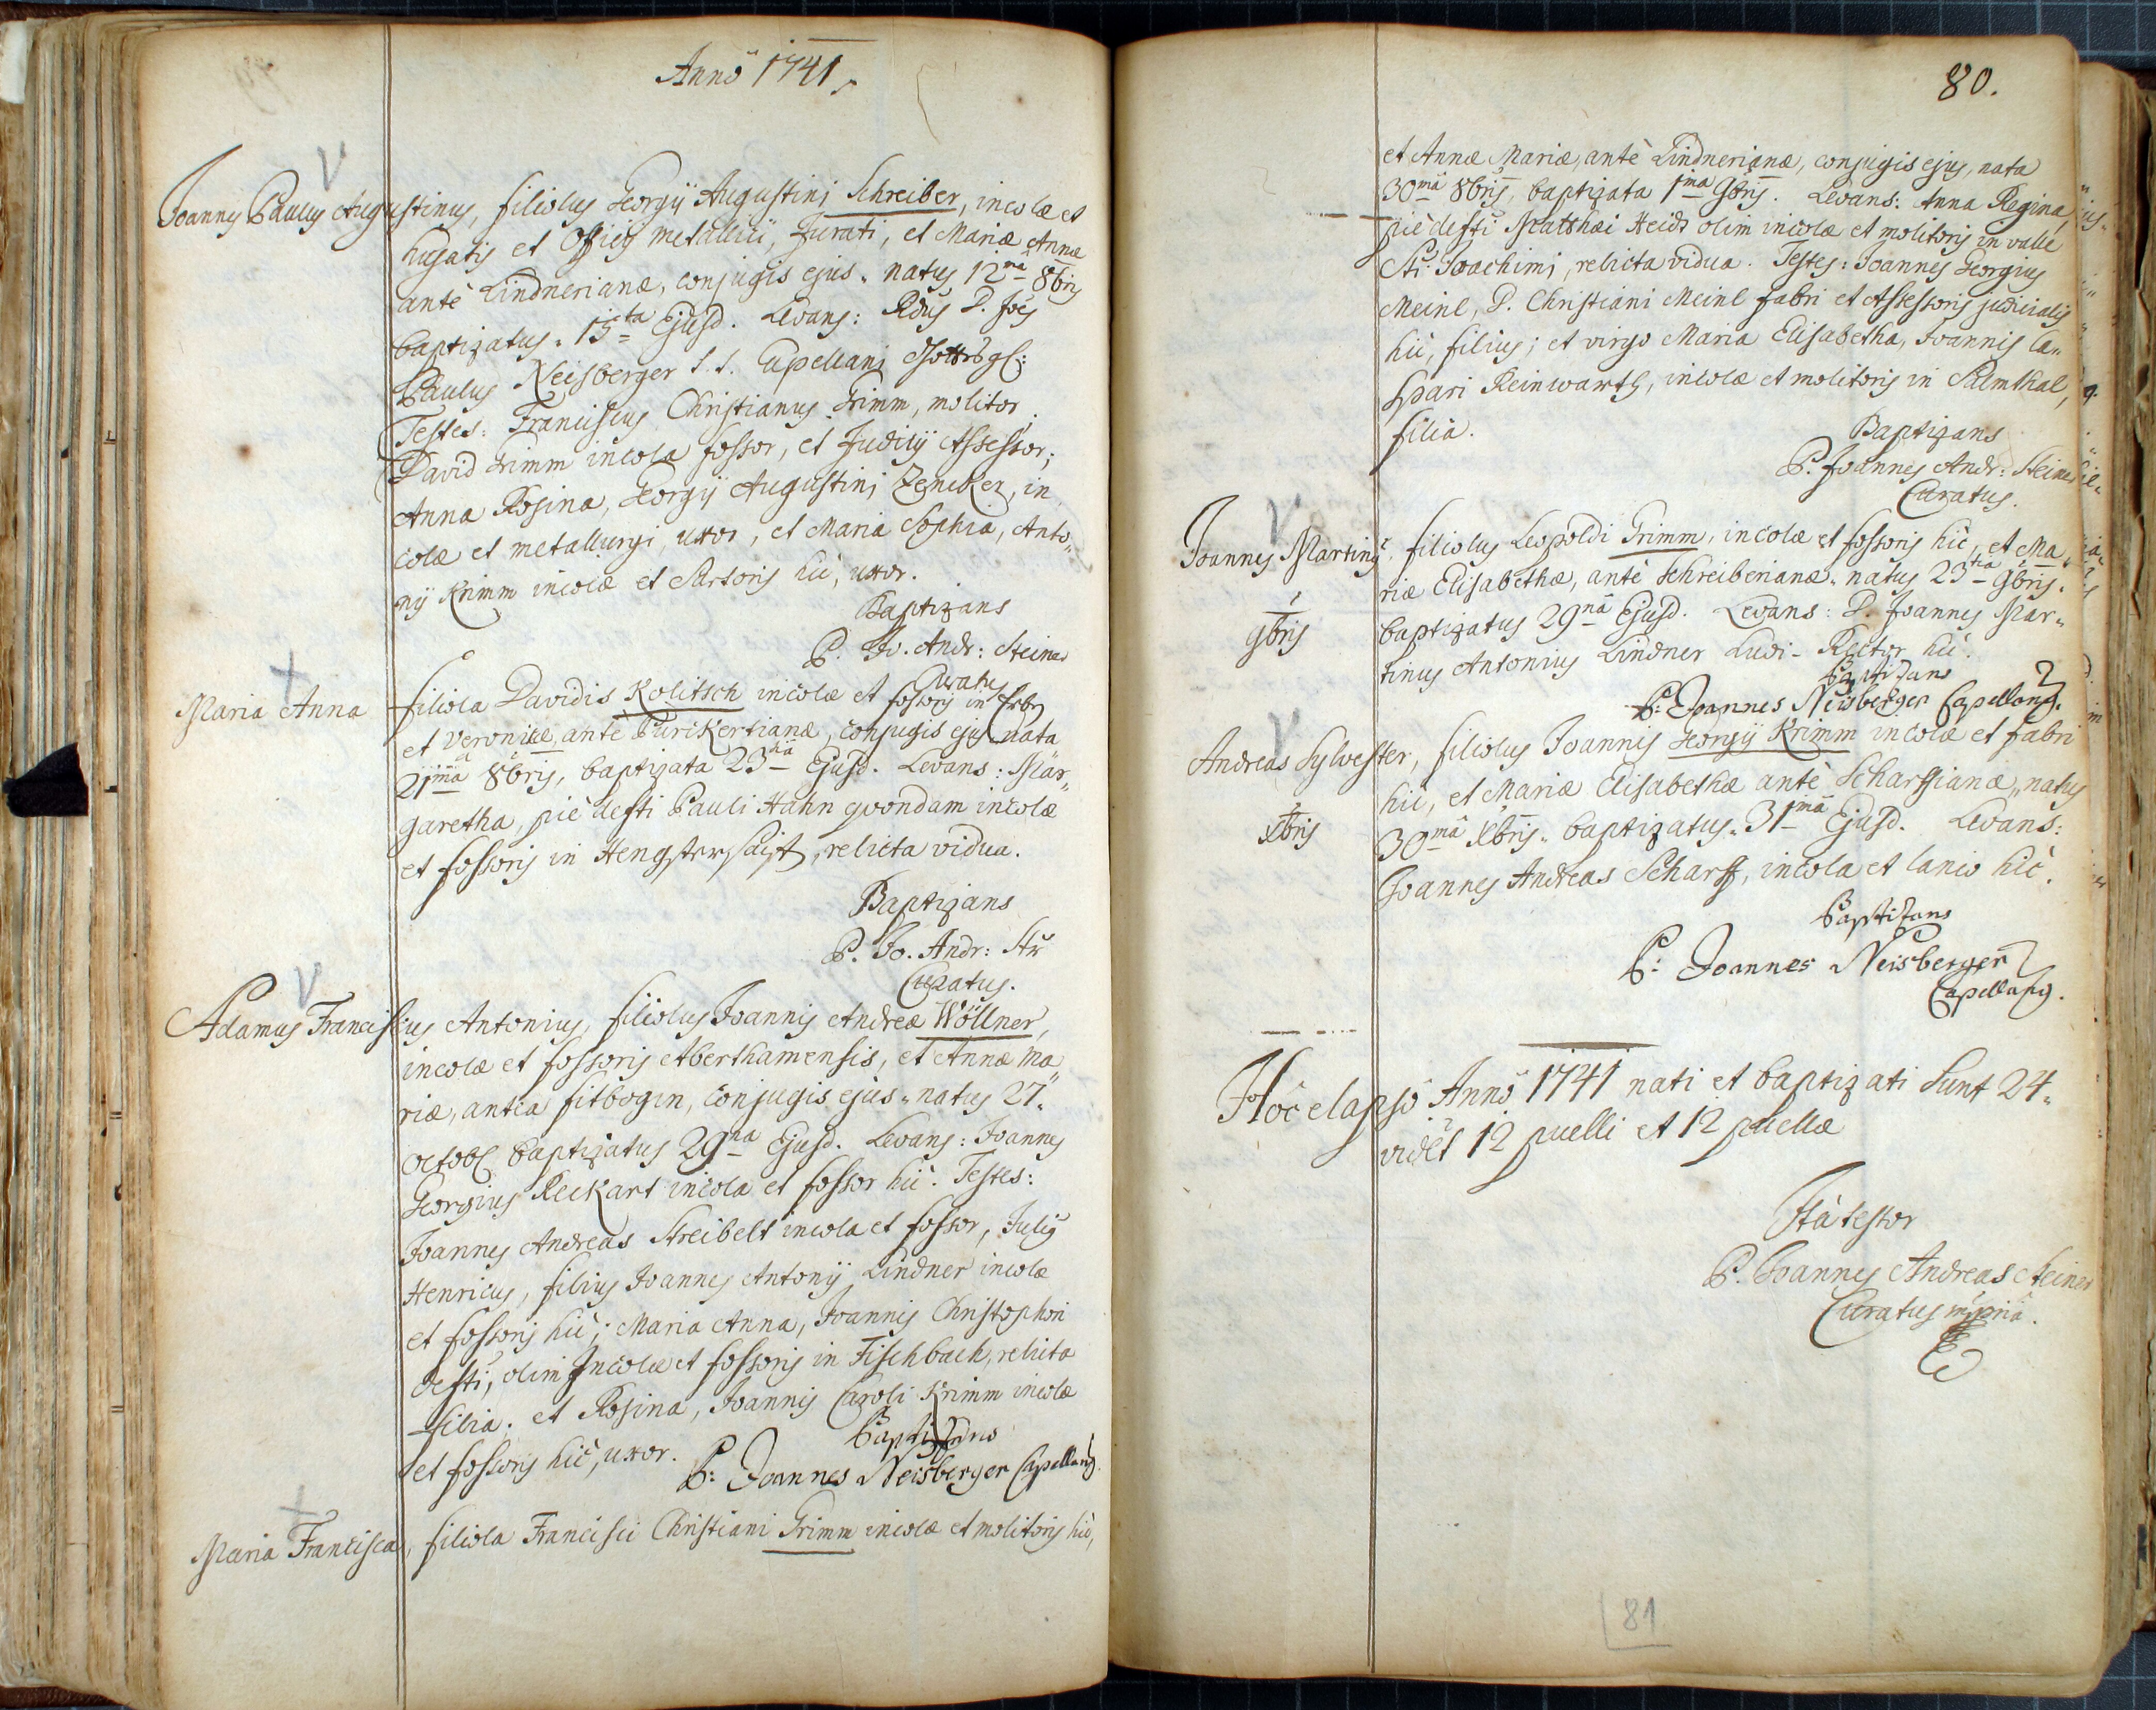 Annô 1741.
Joannes Paulus Augustinus, filiolus Georgij Augustini Schreiber, incolæ et
hujatis et Officij metallici, Jurati, et Mariæ Annæ
antè Lindnerianæ, conjugis ejus. natus 12ma 8bris
baptizatus. 15ta Ejusd. Levans: Rdus P. Joes
Paulus Neisberger Capellani
Testes: Franciscus Christianus Grimm, molitor,
David Grimm incola fossor, et Judicij Assessor;
Anna Rosina, Georgij Augustini Zencker, in
colæ et metallurgi, uxor, et Maria Sophia, Anto„
nij Krimm incolæ et Sartoris hic, uxor.
Baptizans
P. Jo. Andr: Steiner
Curatus
Maria Anna filiola Davidis Kolitsch incolæ et fossoris in
et Veronicæ, antè Purckertianæ, conjugis ejus nata
21ma 8bris, baptizata 23tia Ejusd. Levans: Mar„
garetha, piè defti Pauli Hahn quondam incolæ
et fossoris in Hengstererbst, relicta vidua.
Baptizans
P. Jo. Andr: Str
Curatus.
Adamus Franciscus Antonius, filiolus Joannis Andreæ Wöllner,
incolæ et fossoris Aberthamensis, et Annæ Ma
riæ, antea Fitbogin, conjugis ejus. natus 27.
Octobr baptizatus 29na Ejusd. Levans: Joannes
Georgius Reckart incola et fossor hic. Testes:
Joannes Andreas Streibelt incola et fossor, Julig
Henricus, filius Joannes Antonij Lindner incolæ
et fossoris hic; Maria Anna, Joannis Christophori
defti, olim Incolæ et fossoris in Fischbach, relicta
filia; et Rosina, Joannis Caroli Krimm incolæ
et fossoris hic, uxor.
Baptizans
P: Joannes Neisberger Capellang.
Maria Francisca, filiola Francisci Christiani Grimm incolæ et molitoris hic,
80.
et Annæ Mariæ, antè Lindnerianæ, conjugis ejus, nata
30ma 8bris, baptizata 1ma 9bris. Levans: Anna Regina,
piè defti Matthæi Heidt olim incolæ et molitoris in valle
Sti: Joachimi, relicta vidua. Testes: Joannes Georgius
Meinl, D. Christiani Meinl fabri et Assessoris judicialis
hic, filius; et virgo Maria Elisabetha, Joannis Ca„
spari Reinwarth, incolæ et molitoris in Salmthal,
filia.
Baptizans
P. Joannes Andr: Steiner
Curatus.
Joannes Marting, filiolus Leopoldi Grimm, incolæ et fossoris hic, et Ma„
riæ Elisabethæ, antè Schreiberianæ. natus 23tia 9bris.
9bris
baptizatus 29na Ejusd. Levans: D. Joannes Mar„
tinus Antonius Lindner Ludi-Rector hic.
Baptizans
P: Joannes Neisberger Capellang.
Andreas Sylvester, filiolus Joannis Georgij Krimm incolæ et fabri
hic, et Mariæ Elisabethæ antè Scharffianæ, natus
Xbris
30ma Xbris. baptizatus. 31ma Ejusd. Levans:
Joannes Andreas Scharff, incola et lanio hic.
Baptizans
P: Joannes Neisberger
Capellang.
Hoc elapso Annô 1741 nati et baptizati sunt 24.
videt 12 puelli et 12 puellæ
Ità testor
P. Joannes Andreas Steiner
Curatus mpria.
81